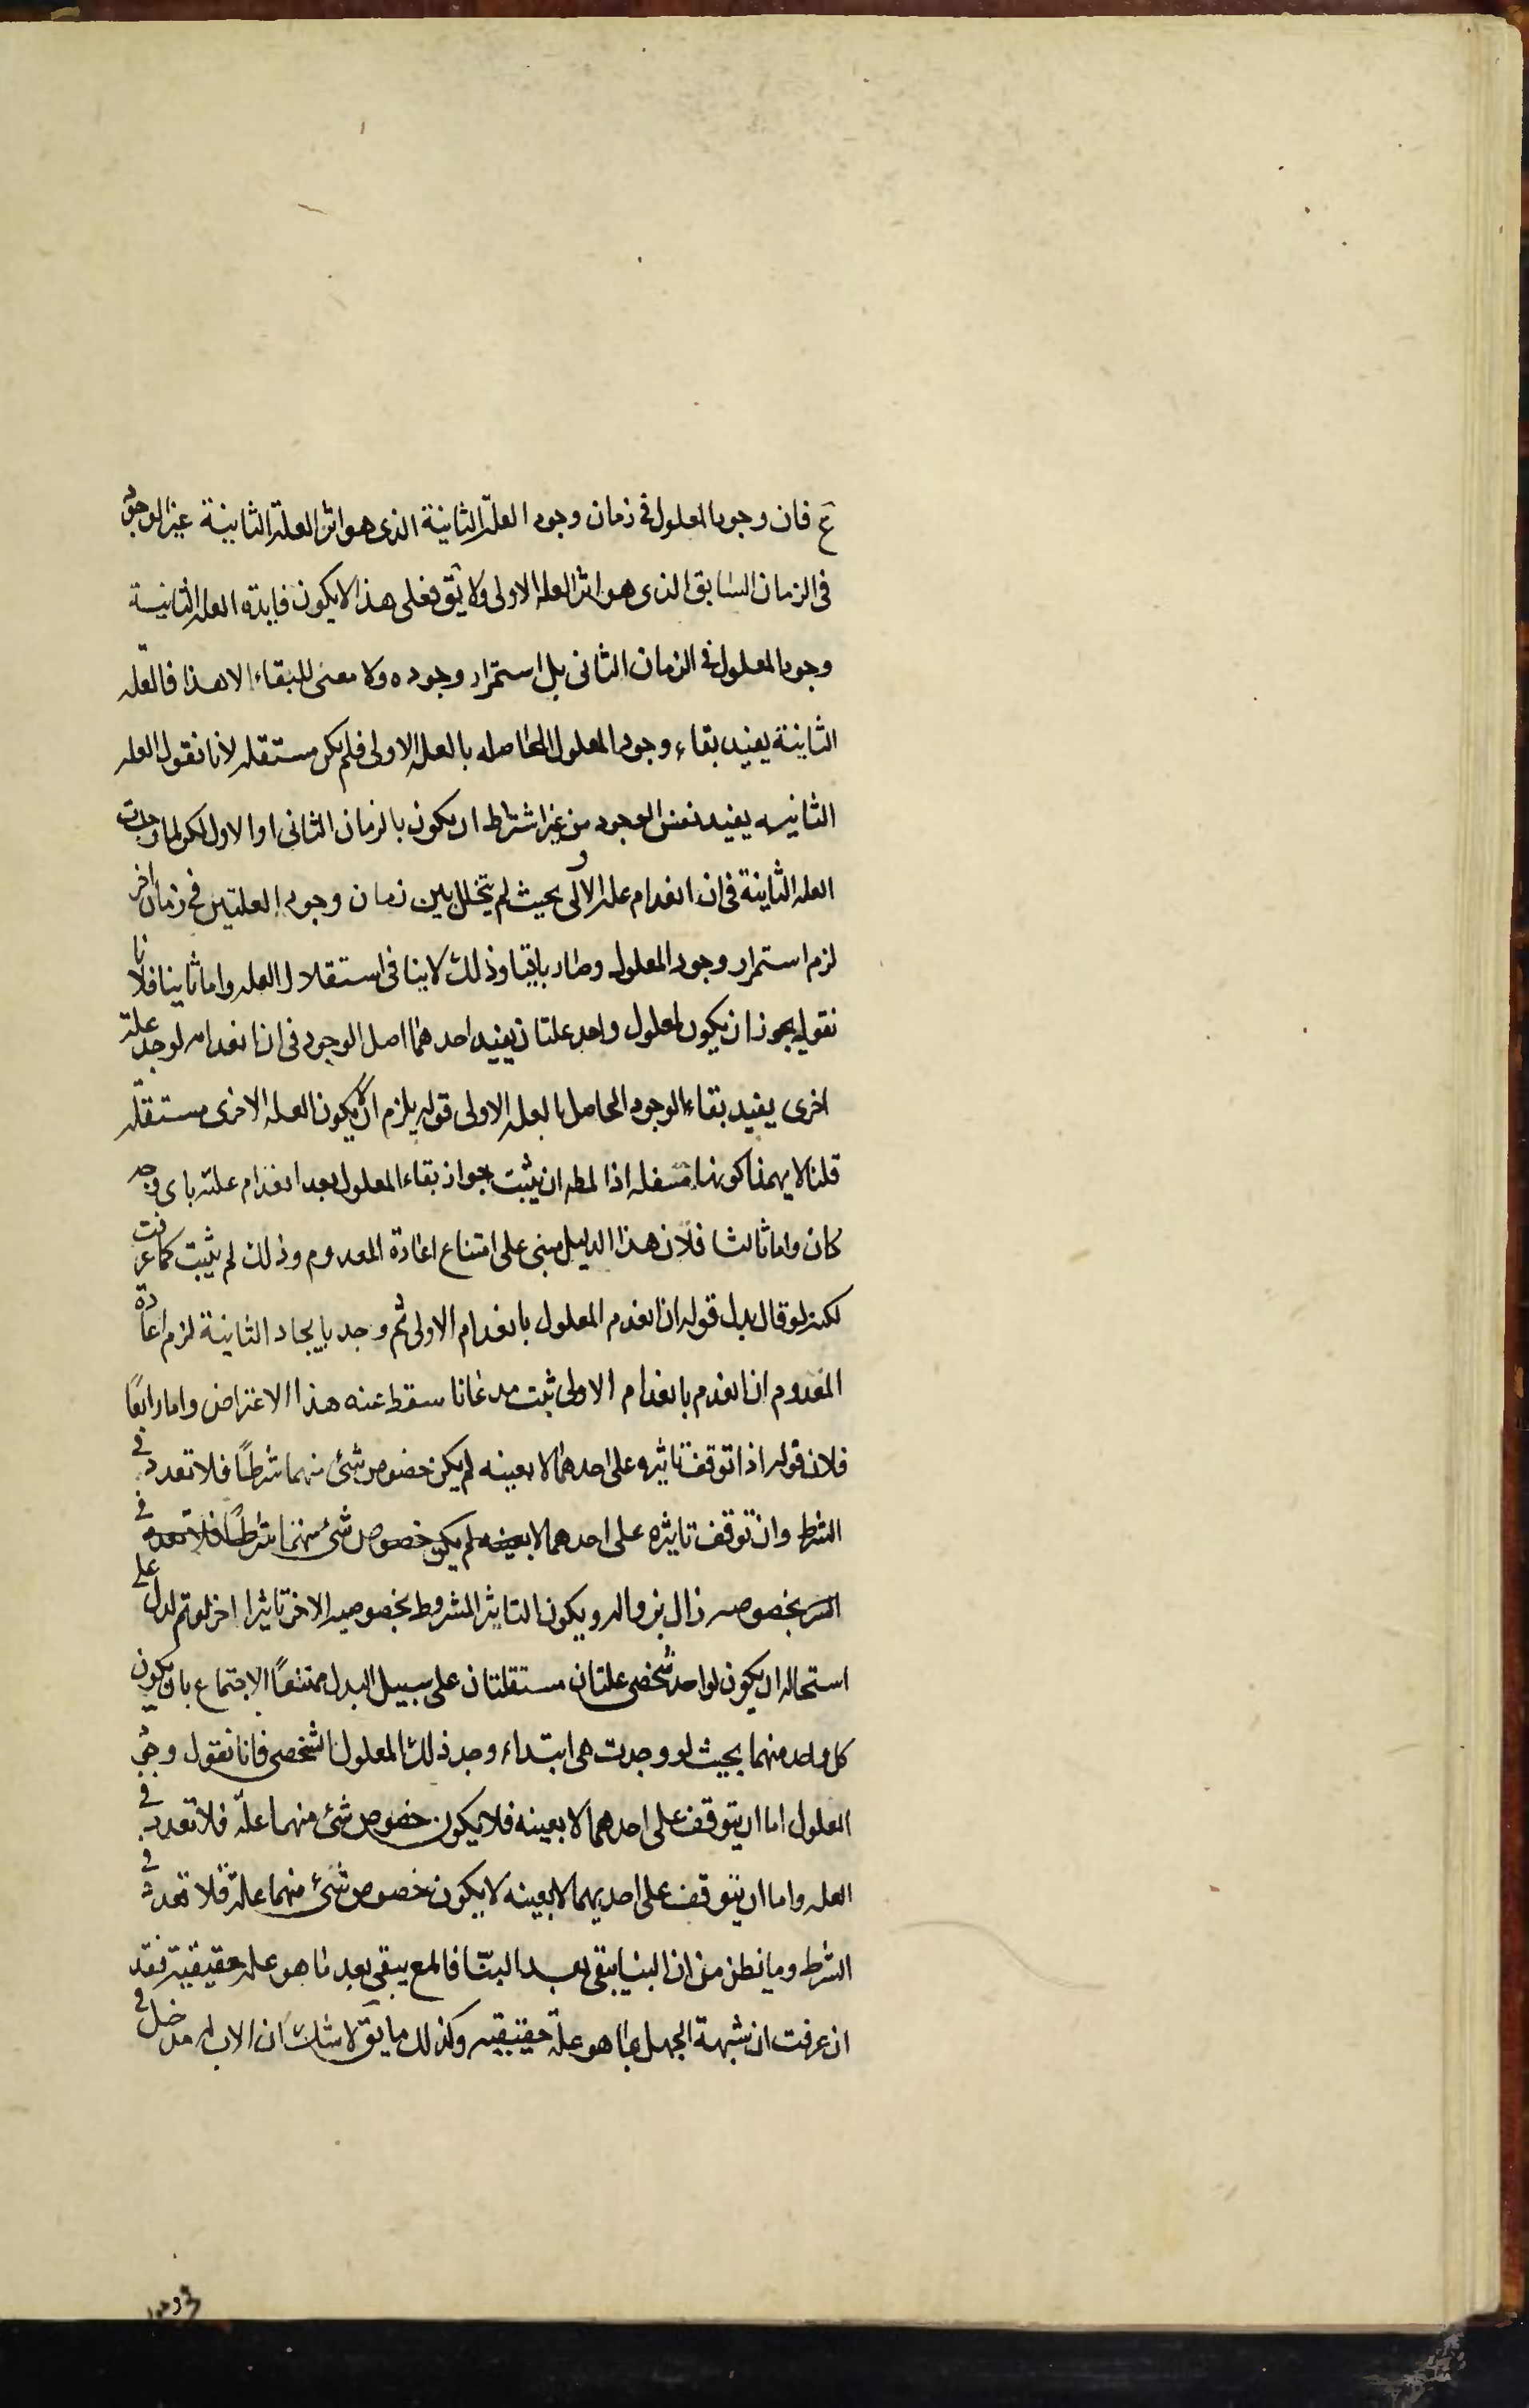 ع فان وجود المعلول فى زمان وجود العلة الثانية الذى هو اثر العلة الثانية غير الوجود
فى الزمان السابق الذى هو اثر العله الاولى ولا يق فعلى هذا لا يكون فايدة العله الثانية
وجود المعلول فى الزمان الثانى بل استمرار وجوده ولا معنى للبقاء الا هذا فالعله
الثانية يفيد بقاء وجود المعلول الحاصله بالعله الاولى فلم يكن مستقله لانا نقول العله
الثانيه يفيد نفس الوجود من غير اشتراط ان يكون بالزمان الثانى او الاول لكن لما وجدت
العله الثانية فى ان انعدام عله الاولى بحيث لم يتخلل بين زمان وجود العلتين فى زمان اخر
لزم استمرار وجود المعلول وصار باقيا وذلك لا ينافى استقلال العله واما ثانيا فلانا
نقول يجوز ان يكون لمعلول واحد علتان يفيد احدهما اصل الوجود فى ان انعدامه لوجد علة
اخرى يفيد بقاء الوجود الحاصل بالعله الاولى قوله يلزم ان لا يكون العله الاخرى مستقله
قلنا لا يهمنا كونها مستقله اذا لمطه ان يثبت جواز بقاء المعلول بعد انعدام علته باى وجه
كان واما ثالثا فلان هذا الدليل مبنى على امتناع اعادة المعدوم وذلك لم يثبت كما عرفت
لكنه لو قال بدل قوله ان انعدم المعلول بانعدام الاولى ثم وجد بايجاد الثانية لزم اعادة
المعدوم ان انعدم بانعدام الاولى ثبت مدعانا سقط عنه هذا الاعتراض واما رابعًا
فلان قوله اذا توقف تاثيره على احدهما لا بعينه لم يكن خصوص شئ منهما شرطًا فلا تعدد فى
الشرط وان توقف تاثيره على احدهما لا بعينه لم يكن خصوص شئ منهما شرطًا فلا تعدد فى
الشر بخصوصه زال بزواله ويكون التاثير المشروط بخصوصيه الاخر تاثيرا اخر لو تم لدل على
استحاله ان يكون لواحد شخصى علتان مستقلتان على سبيل البدل ممتنعًا الاجتماع بان يكون
كل واحد منهما بحيث لو وجدت هى ابتداء وجد ذلك المعلول الشخصى فانا نقول وجود
المعلول اما ان يتوقف على احدهما لا بعينه فلا يكون خصوص شئ منهما علة فلا تعدد فى
العله واما ان يتوقف على احديهما لا بعينه لا يكون خصوص شئ منهما علة فلا تعدد فى
الشرط وما نظن من ان البنا يبقى بعد البنّا فالمع يبقى بعد ما هو عله حقيقية فقد
ان عرفت ان شبهة الجهل بما هو علة حقيقيه وكذلك ما يق لا شك ان الاب له مدخل فى